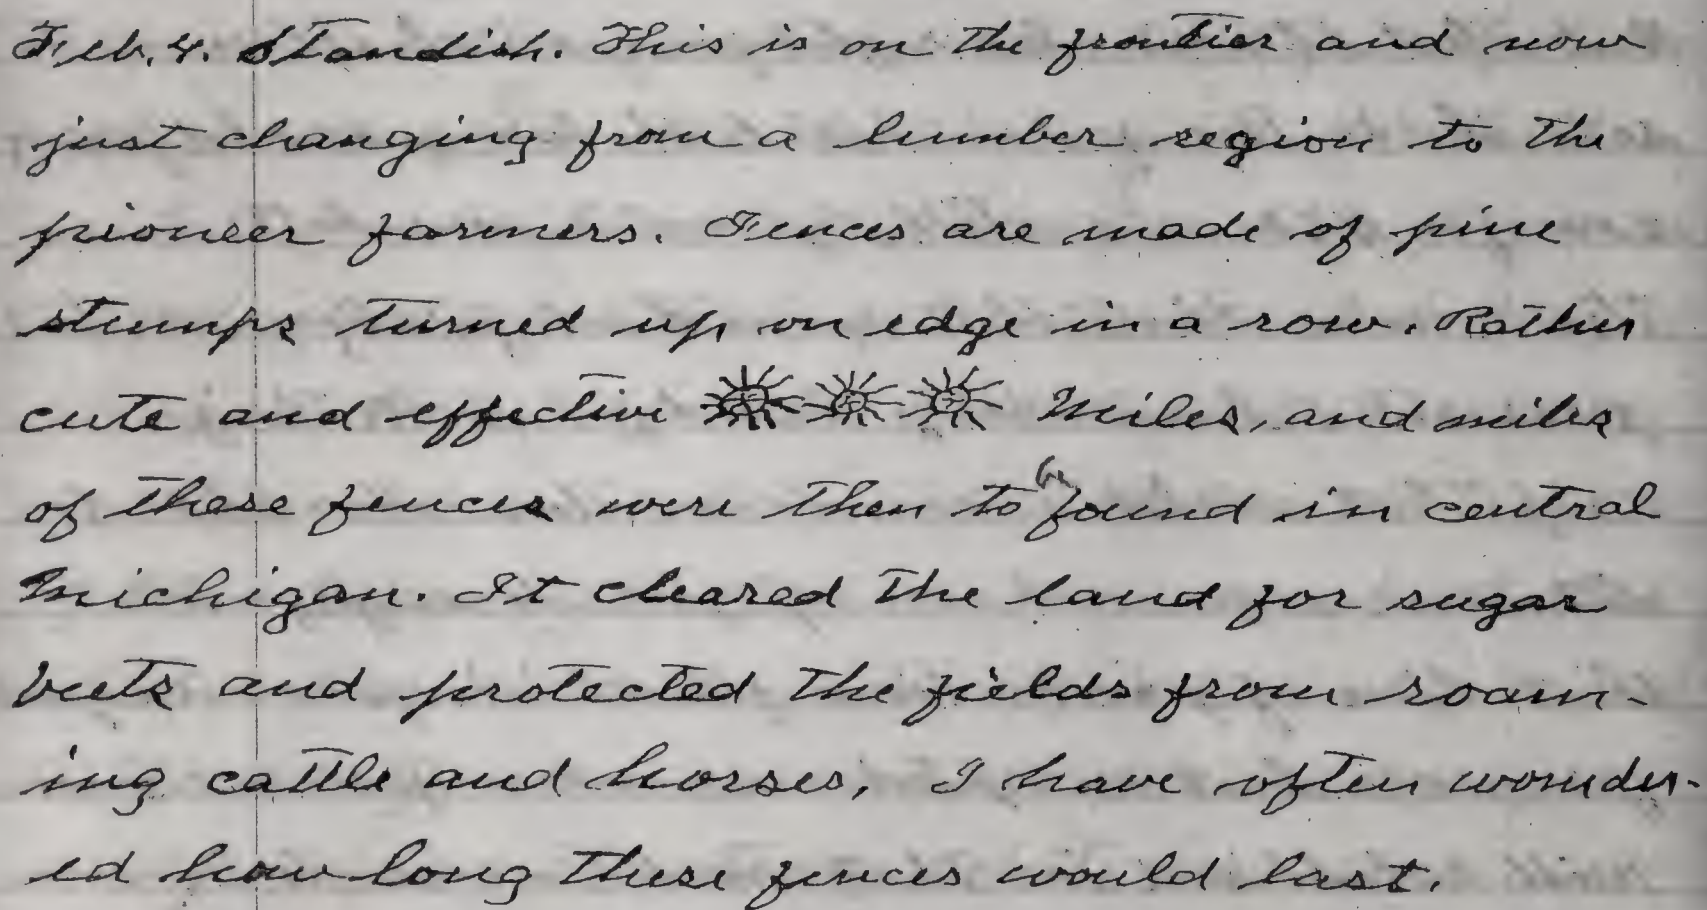 Feb. 4. Standish. This is on the frontier and now
just changing from a lumber region to the
pioneer farmers. Fences are made of pine
stumps turned up on edge in a row. Rather
cute and effective Miles, and miles
of these fences were then to be found in central
Michigan. It cleared the land for sugar
beets and protected the fields from roam-
ing cattle and horses, I have often wonder-
ed how long these fences would last.